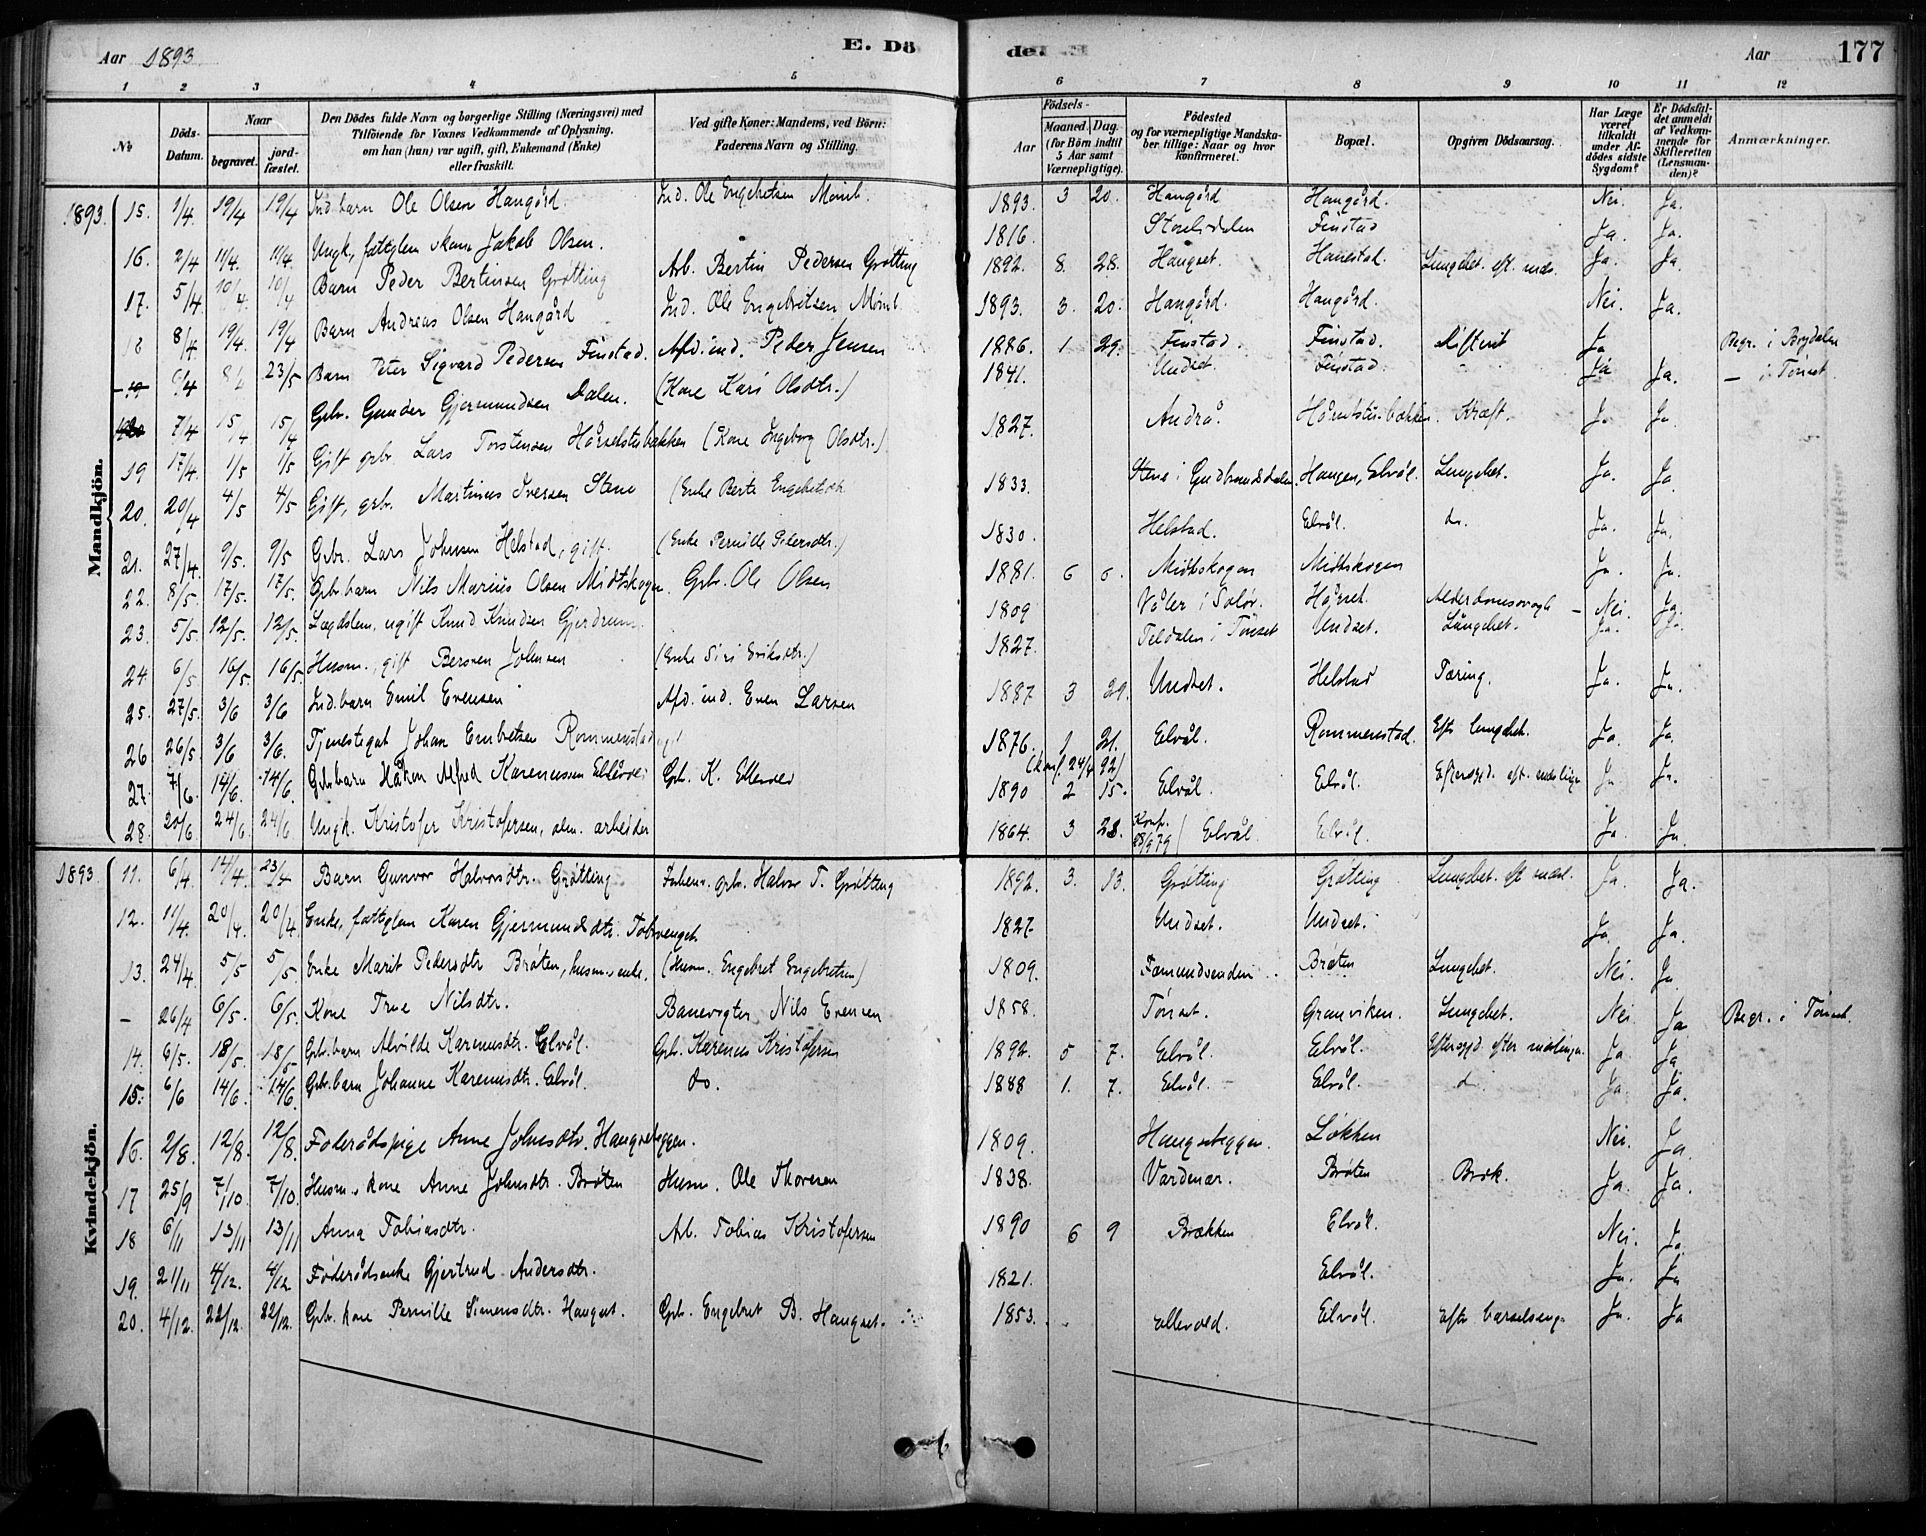 Aar 1893.
E. Dö
de
Aar
177
1 2 3 4 5 6 7 8 9 10 11 12
No
Döds-Datum.
Naar
begravet.
jord-fæstet.
Den Dödes fulde Navn og borgerlige Stilling (Næringsvei) med
Tilföiende for Voxnes Vedkommende af Oplysning,
om han (hun) var ugift, gift, Enkemand (Enke)
eller fraskilt.
Ved gifte Koner: Mandens, ved Börn:
Faderens Navn og Stilling.
Födsels-
Aar
Maaned. Dag.
(for Börn indtil
5 Aar samt
Værnepligtige).
Födested
og for værnepligtige Mandska-
ber tillige: Naar og hvor
konfirmeret.
Bopæl.
Opgiven Dödsaarsag.
Har Læge
været
tilkaldt
under Af-
dödes sidste
Sygdom?
Er Dödsfal-
det anmeldt
af Vedkom-
mende for
Skifteretten
(Lensman-
den)?
Anmærkninger.
Mandkjön.
1893. 15. 1/4 19/4 19/4 Ind. barn Ole Olsen Hangård. Ind. Ole Engebretsen 1893. 3 20. Hangård Hangård. Nei. Ja.
16. 2/4 11/4. 11/4. Ungk, fattiglem Jakob Olsen. 1816. Finstad Ja. Ja.
17. 5/4 10/4 10/4 Barn Peder Bertinsen Grøtting Arb. Bertin Pedersen Grøtting 1892. 8. 28. Hangset. Hanestad. Lungebet. eft. mæs. Ja. Ja.
18 8/4 19/4. 19/4 Barn Andreas Olsen Hangård Ind. Ole Engebretsen 1893. 3. 20. Hangård. Hangård. Nei. Ja.
6/4 23/5 Barn Peter Sigvard Pedersen Finstad. Afd. ind. Peder Jensen 1886. 1 29. Finstad. Finstad. Difterit Ja Begr. i Brydalen
7/4 15/4 15/4 Gbr. Gunder Gjermundsen Dalen. (Kone Kari Olsdtr.) 1841. Undset. Finstad. Ja Ja. — i Tønset.
19 17/4. 1/5 1/5 Gift gbr. Lars Torstensen (Kone Ingeborg Olsdtr.) 1827. Andrå. Kræft. Ja. Ja.
20. 20/4 4/5 4/5 Gift, gbr. Martinus Iversen Stene (Enke Berte Engebretsdtr. 1833. Stene i Gudbrandsdalen. Haugen, Elvål. Lungebet. Ja. Ja
21. 27/4. 9/5. 9/5 Gbr. Lars Johnsen Helstad, gift. (Enke Pernille Pedersdtr.) 1830. Helstad. Elvål. do. Ja. Ja.
22. 8/5. 17/5. 17/5. Gbr. barn Nils Marius Olsen Midtskogen. Gbr. Ole Olsen 1881. 6 6. Midtskogen Midtskogen Ja. Ja.
23. 5/5 12/5. 12/5. Lægdslem, ugift Knud Knudsen Gjerdrum. 1809 Våler i Solør. Hårset. Alderdomssvagh. — Nei. Ja.
24. 6/5 16/5. 16/5. Husm., gift Bersven Johnsen (Enke Siri Eriksdtr.) 1827. i Tønset Undset. Lungebet. Ja. Ja.
25. 27/5. 3/6 3/6 Ind. barn Emil Evensen Afd. ind. Even Larsen 1887 3 29. Undset. Helstad Tæring. Ja. Ja.
26 26/5 3/6 3/6. Tjenestegut Johan Embretsen Rommenstad 1876. 1 21. (konf. 24/4 92) Elvål. Rommenstad. Eft. lungebet. Ja. Ja.
27. 7/6 14/6. 14/6. Gbr. barn Håkon Alfred Karenussen Ellevold Gbr. K. Ellevold 1890 2 15. Elvål. Elvål. Eftersygd. eft. mæslinger Ja Ja.
28. 20/6. 24/6 24/6 Ungk. Kristofer Kristofersen, alm. arbeider 1864. 3 28. Konf. 28/9 79 Elvål Elvål. Ja. Ja
Kvindekjön.
1893. 11. 6/4 14/4. 23/4 Barn Gunvor Halvorsdtr. Grøtting gbr. Halvor T. Grøtting 1892. 3. 13. Grøtting Grøtting Lungebet. eft. mæsl. Ja. Ja.
12. 11/4. 20/4. 20/4. Enke, fattiglem Karen Gjermundsdtr. 1827 Undset. Undset. Ja. Ja.
13. 24/4 5/5 5/5. Enke Marit Pedersdtr Bråten, husm.enke. (Husm. Engebret Engebretsen) 1809. Femundsenden Bråten Lungebet. Nei. Ja
– 26/4 6/5. 6/5. Kone True Nilsdtr. Banevogter Nils Evensen 1858. Tønset. Granviken. Lungebet. Nei Ja Begr. i Tønset.
14. 6/5. 18/5. 18/5 Gbr. barn Alvilde Karenusdtr. Elvål. Gbr. Karenus Kristofersen 1892. 5 7. Elvål. Elvål. Eftersygd. efter mæslinger. Ja Ja
15. 6/6 14/6. 14/6. Gbr. barn Johanne Karenusdtr. Elvål. do. 1888 1. 7. Elvål. Elvål. d Ja Ja.
16. 2/8. 12/8. 12/8. Føderådspige Anne Johnsdtr. Hangseteggen. 1809. Hangseteggen. Løkken Nei. Ja.
17 25/9 7/10 7/10. Husm. kone Anne Johnsdtr. Bråten Husm. Ole Thoresen 1838. Bråten Brok. Ja. Ja.
18 6/11 13/11 13/11 Anna Tobiasdtr. Arb. Tobias Kristofersen 1890 6 9 Brækken Elvål. Nei. Ja
19. 21/11 4/12. 4/12 Føderådsenke Gjertrud Andersdtr. 1821. Elvål. Ja. Ja
20. 4/12. 22/12. 22/12. Gbr. kone Pernille Simensdtr. Hangset. Gbr. Engebret B. Hangset. 1853. Ellevold. Elvål. Efter barselseng. Ja. Ja